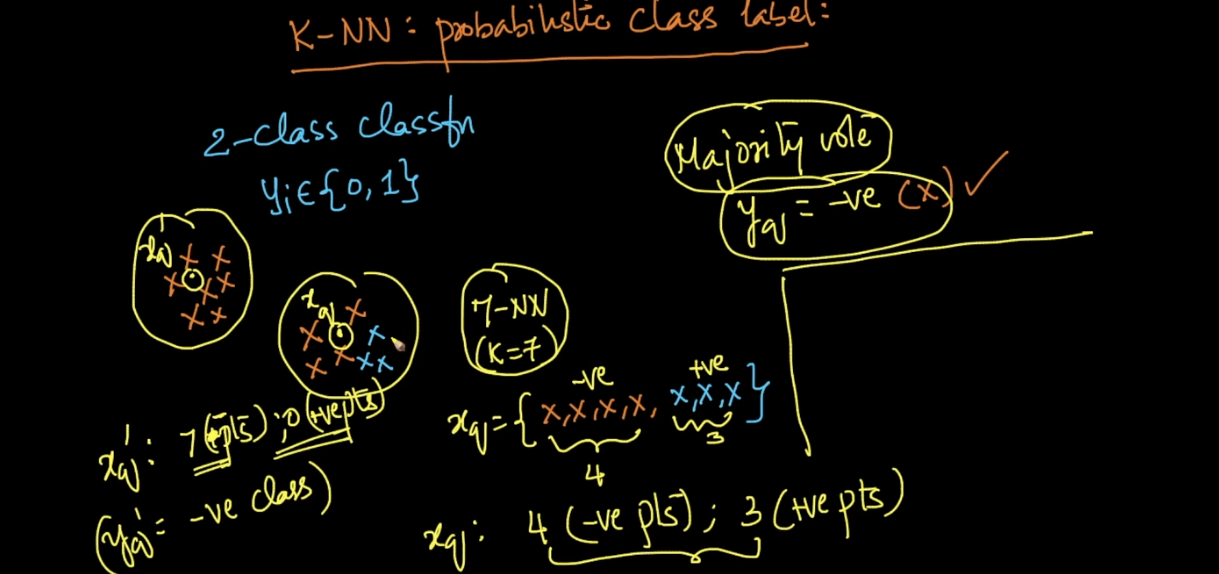 K-NN : probabilistic class label:
2-class classfn
yi∈{0,1}
Majority vote
yq = -ve (x) ✓
xq'
x x
x x x
x x
xq x
x x
x x x x
7-NN
(K=7)
-ve +ve
xq = { x,x,x,x, x,x,x }
4 3
xq': 7 (-pts) ; 0 (+ve pts)
(yq' = -ve class)
xq: 4 (-ve pts) ; 3 (+ve pts)